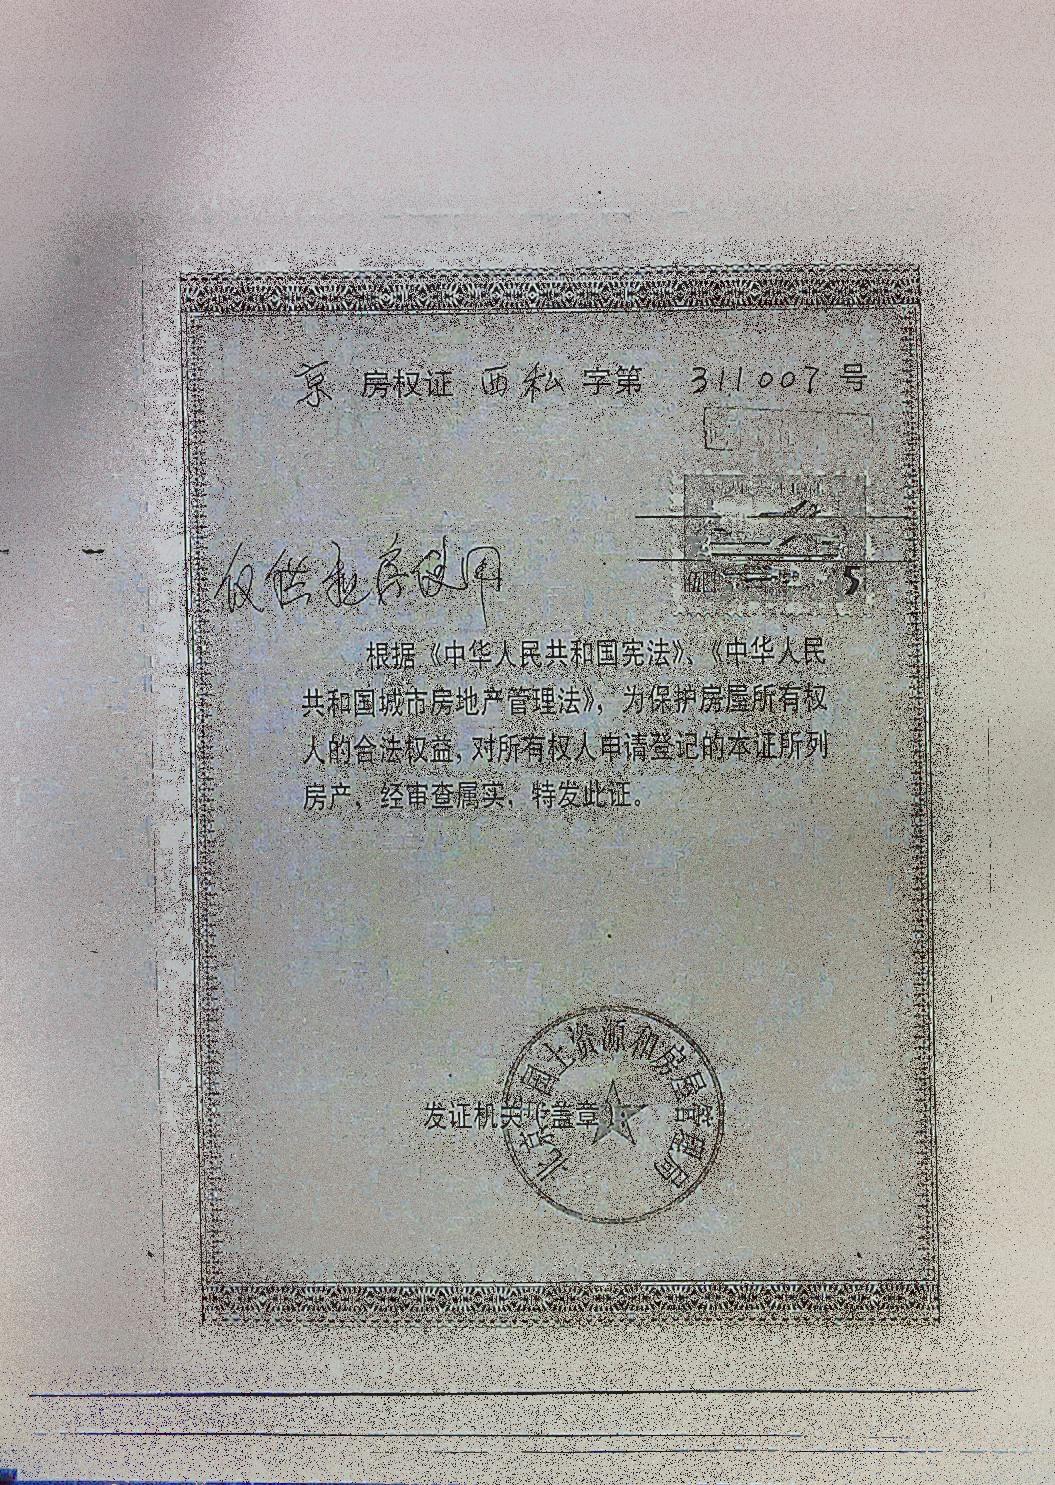 京 房权证 西私 字第 311007 号
5
仅供租房使用
根据《中华人民共和国宪法》、《中华人民
共和国城市房地产管理法》，为保护房屋所有权
人的合法权益，对所有权人申请登记的本证所列
房产，经审查属实，特发此证。
北京市国土资源和房屋管理局
发证机关（盖章）：